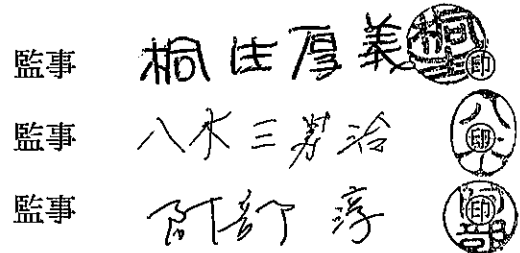 監事 桐生厚義 印
監事 八木三 治 印
監事 阿部 淳 印